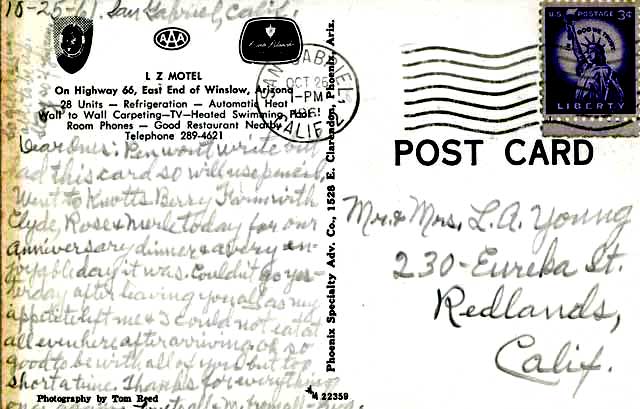 10-25-61, San Gabriel, Calif.
AAA
Carte Blanche
L Z MOTEL
On Highway 66, East End of Winslow, Arizona
28 Units — Refrigeration — Automatic Heat
Wall to Wall Carpeting—TV—Heated Swimming Pool
Room Phones — Good Restaurant Nearby
Telephone 289-4621
Dear Ones: Pen won't write but
had this card so will use pencil.
Went to Knotts Berry Farm with
Clyde, Rose & Merle today for our
anniversary dinner & a very en-
joyable day it was. Couldn't go yes-
terday after leaving you all as my
appetite left me & I could not eat at
all even here after arriving. Oh so
good to be with all of you but too
short a time. Thanks for everything
Photography by Tom Reed
Phoenix Specialty Adv. Co., 1528 E. Clarendon, Phoenix, Ariz.
M 22359
SAN GABRIEL,
OCT 25
1-PM
1961
CALIF. 2
U.S. POSTAGE 3¢
IN GOD WE TRUST
LIBERTY
POST CARD
Mr. & Mrs. L.A. Young
230-Eureka St.
Redlands,
Calif.